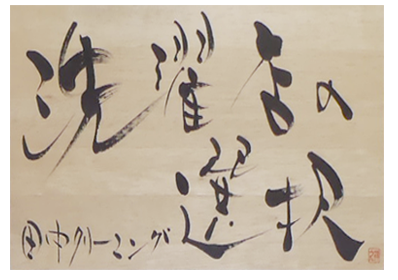 洗濯店の
選択
田中クリーニング